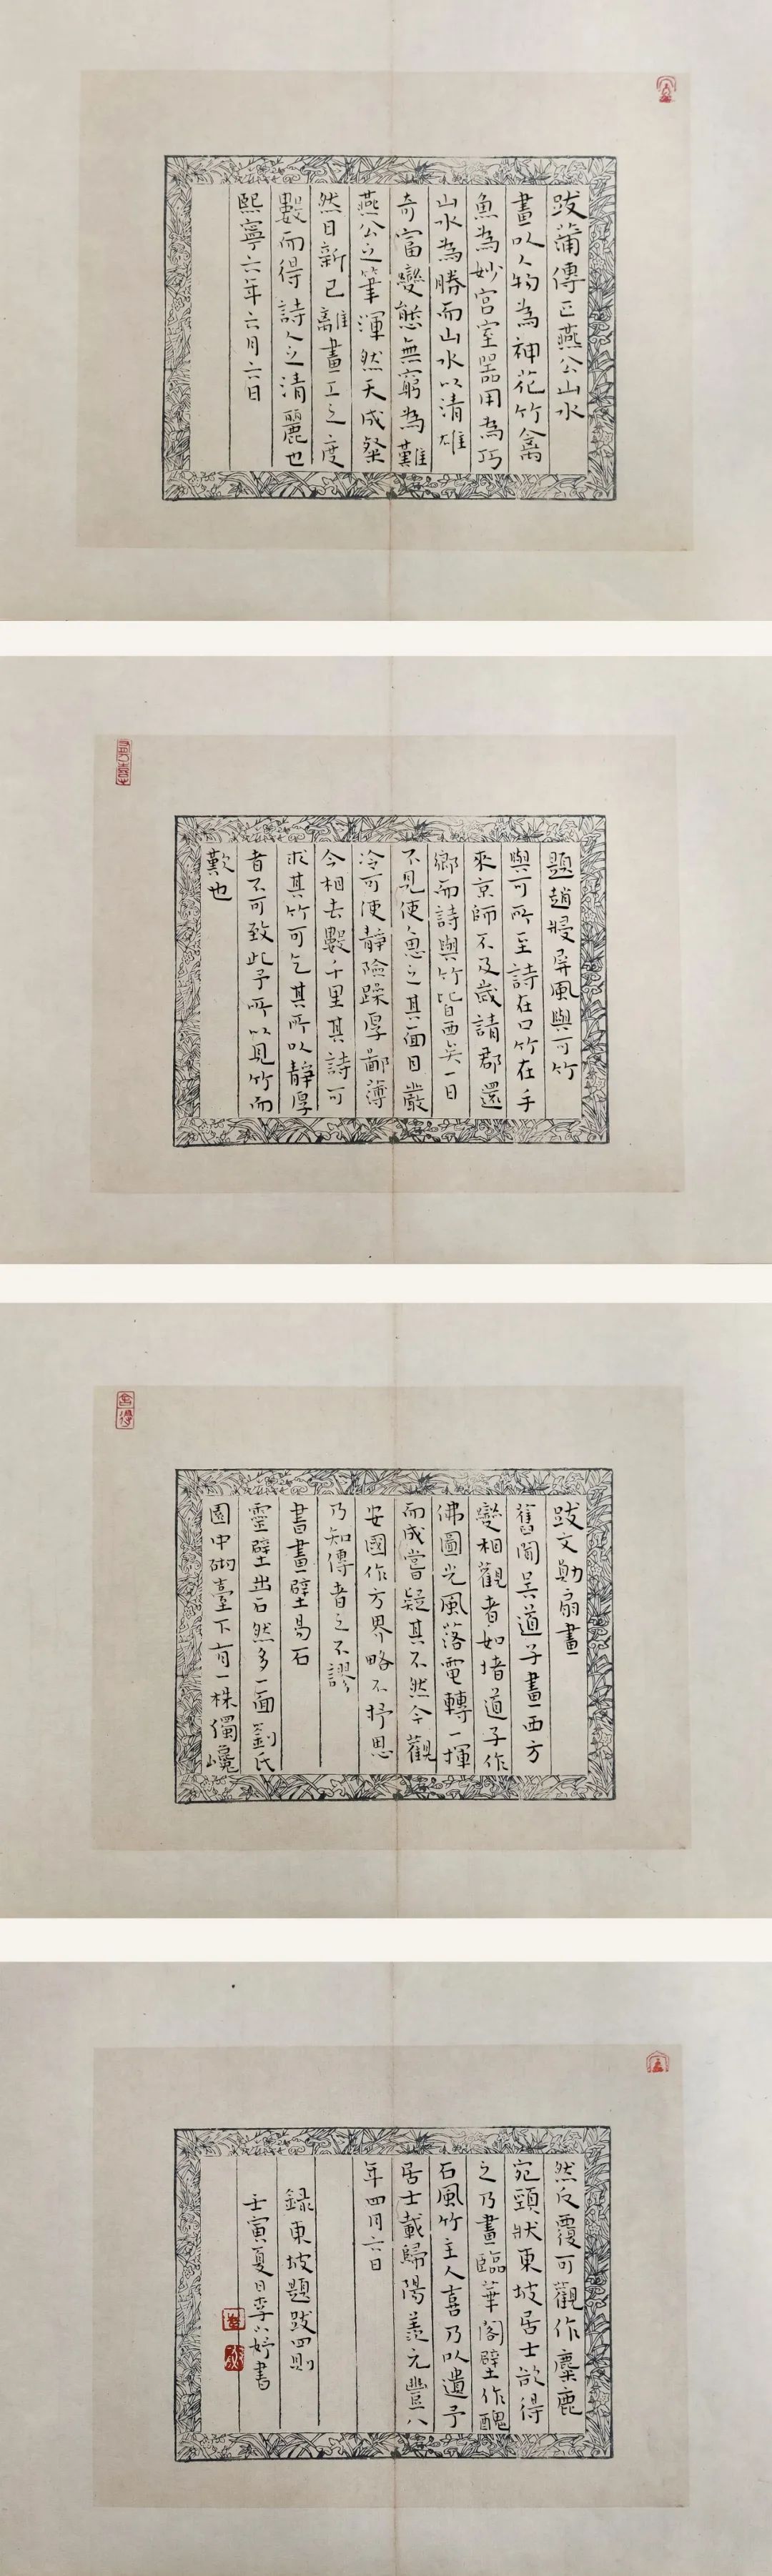 跋蒲傳正燕公山水
畫以人物為神花竹禽
魚為妙宮室器用為巧
山水為勝而山水以清雄
奇富變態無窮為難
燕公之筆渾然天成粲
然日新已離畫工之度
數而得詩人之清麗也
熙寧六年六月六日
題趙㞘屏風與可竹
與可所至詩在口竹在手
來京師不及歲請郡還
鄉而詩與竹皆西矣一日
不見使人思之其面目嚴
冷可使靜險躁厚鄙薄
今相去數千里其詩可
求其竹可乞其所以靜厚
者不可致此予所以見竹而
歎也
跋文勛扇畫
舊聞吳道子畫西方
變相觀者如堵道子作
佛圓光風落電轉一揮
而成嘗疑其不然今觀
安國作方界略不抒思
乃知傳者之不謬
書畫壁易石
靈壁出石然多一面劉氏
園中砌臺下有一株獨巉
然反覆可觀作麋鹿
宛頸狀東坡居士欲得
之乃畫臨華閣壁作醜
石風竹主人喜乃以遺予
居士載歸陽羨元豐八
年四月六日
錄東坡題跋四則
壬寅夏日李小婷書